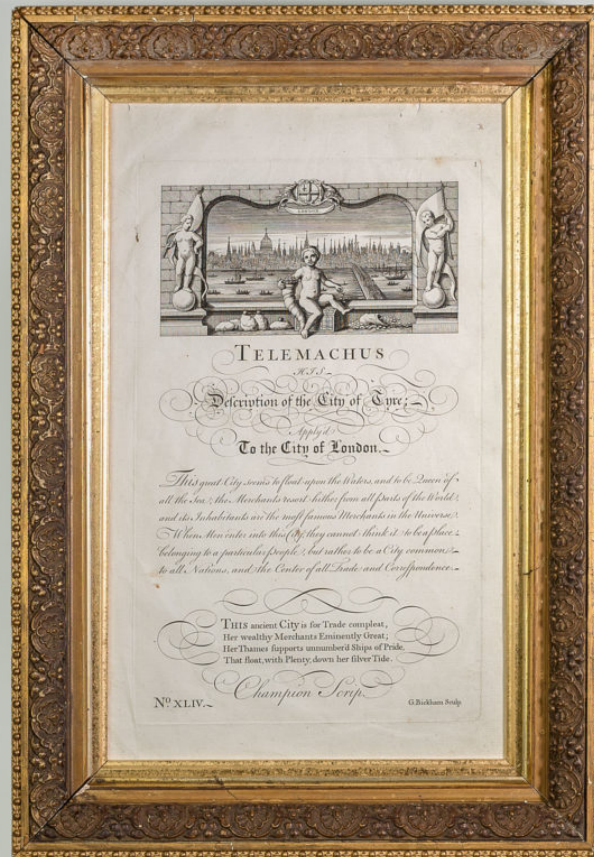 LONDON
TELEMACHUS
HIS
Description of the City of Tyre;
Apply'd
To the City of London.
This great City seems to float upon the Waters, and to be Queen of
all the Sea; the Merchants resort hither from all Parts of the World,
and its Inhabitants are the most famous Merchants in the Universe.
When Men enter into this City, they cannot think it to be a Place
belonging to a particular People, but rather to be a City common
to all Nations, and the Center of all Trade and Correspondence.
THIS ancient City is for Trade compleat,
Her wealthy Merchants Eminently Great;
Her Thames supports unnumber'd Ships of Pride,
That float, with Plenty, down her silver Tide.
Champion Scrip.
No XLIV.
G. Bickham Sculp